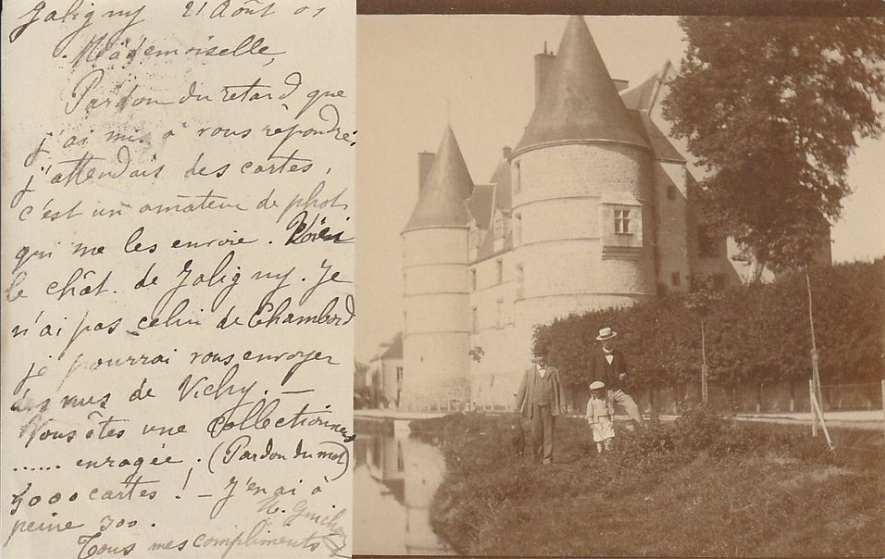 Jaligny 21 Août 01
Mademoiselle,
Pardon du retard que
j'ai mis à vous répondre,
j'attendais des cartes,
c'est un amateur de phot
qui me les envoie. Voici
le chât. de Jaligny. Je
n'ai pas celui de Chambord
je pourrai vous envoyer
des vues de Vichy. —
Vous êtes une collectionneuse
...... enragée. (Pardon du mot)
3000 cartes ! - J'en ai à
peine 300.
Tous mes compliments